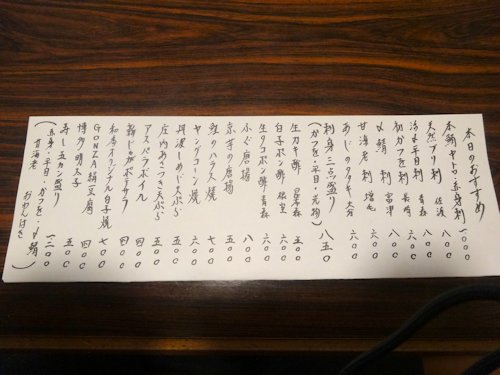 本日のおすすめ
本鮪中とろ・赤身刺 一〇〇〇
天然ブリ刺 佐渡 八〇〇
活〆平目刺 青森 八〇〇
初かつを刺 長崎 八〇〇
〆鯖刺 富津 六〇〇
甘海老刺 増毛 八〇〇
あじのタタキ 大分 六〇〇
刺身三点盛り 八五〇
(かつを・平目・光物)
生ガキ酢
白子ポン酢 根室 六〇〇
生タコポン酢 青森 六〇〇
ふぐ唐揚 八〇〇
京芋の唐揚 五〇〇
鮭のハラス焼 七〇〇
ヤングコーン焼 六〇〇
丹波しめじ天ぷら 五〇〇
庄内あさつき天ぷら 五〇〇
アスパラボイル 五〇〇
新じゃがポテサラ 四〇〇
和香オリジナル白子焼
GONZA絹豆腐 七〇〇
博多明太子 四〇〇
寿し五カン盛り 五〇〇
(赤身・平目・かつを・〆鯖 一二〇〇
甘海老 おおんばさ)